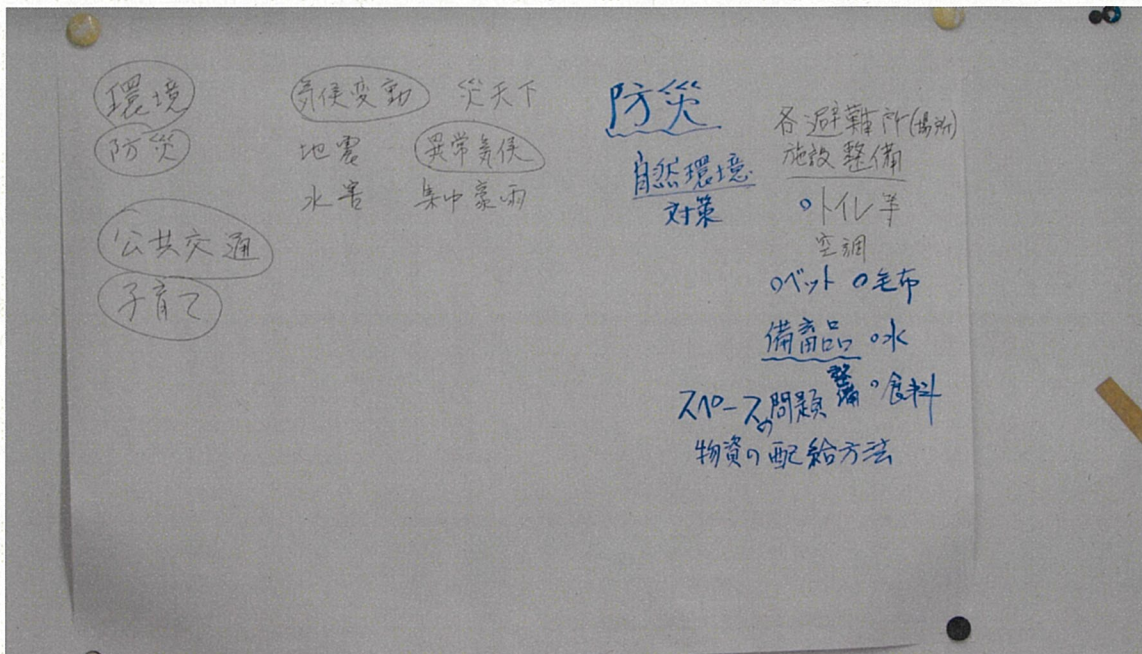 環境
防災
公共交通
子育て
気候変動 炎天下
地震 異常気候
水害 集中豪雨
防災
自然環境
対策
各避難所(場所)
施設整備
○トイレ等
空調
○ベット ○毛布
備畜品 ○水
整備 ○食料
スペースの問題
物資の配給方法